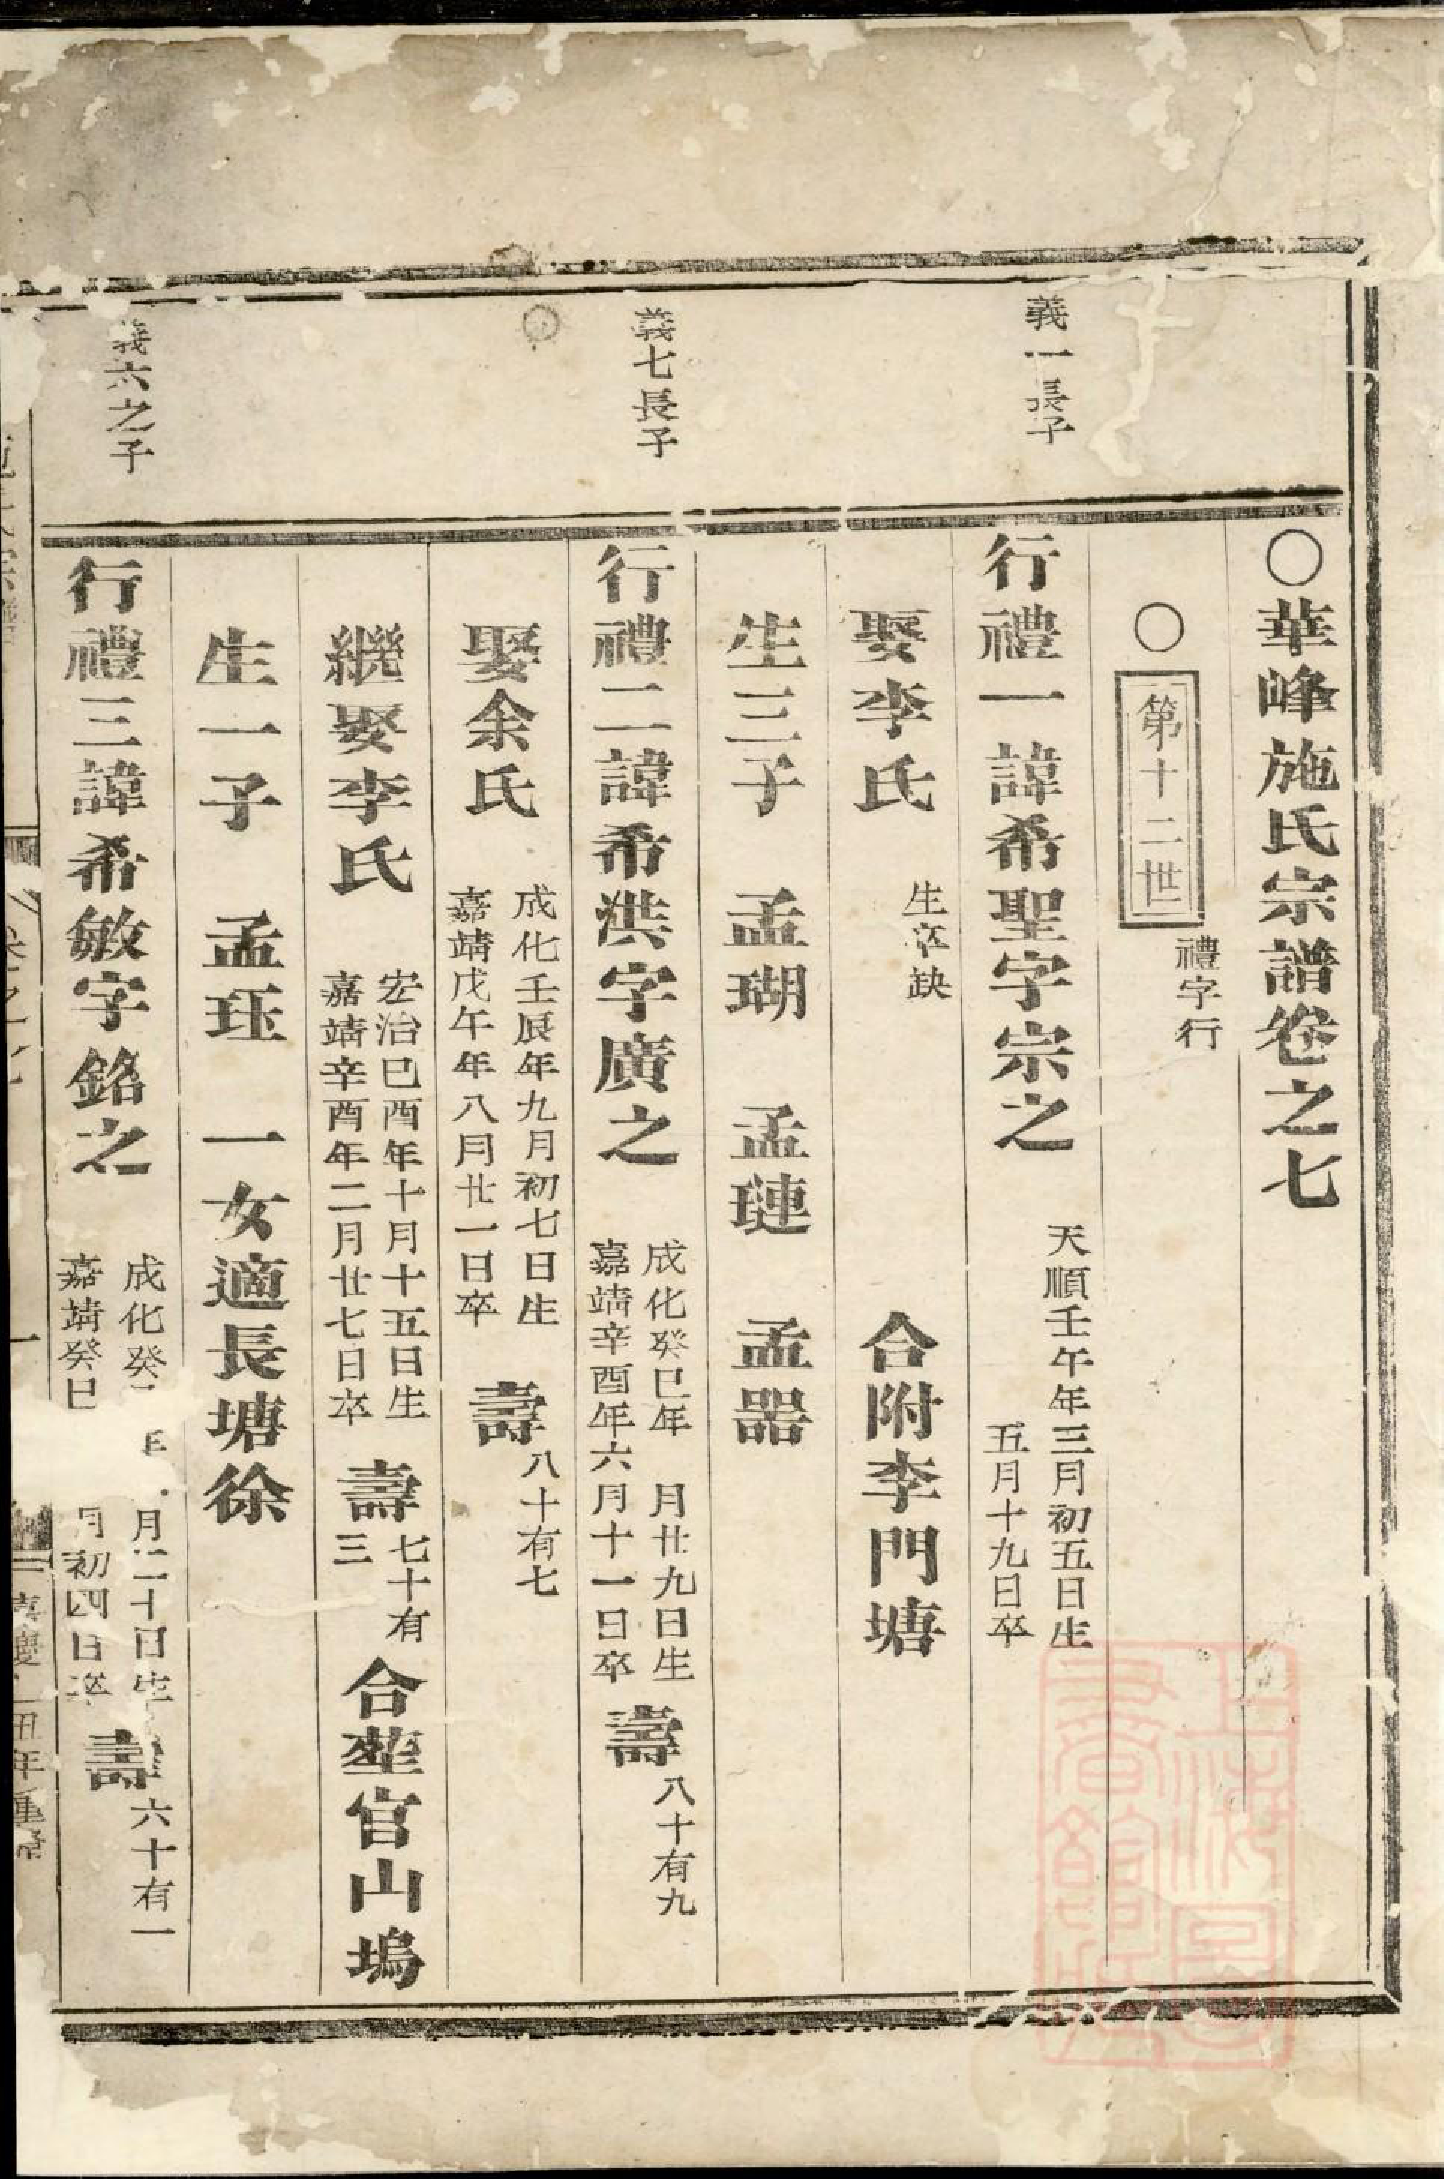 ○華峰施氏宗譜卷之七
○第十二世
禮字行
義一長子
行禮一諱希聖字宗之
天順壬午年三月初五日生
五月十九日卒
娶李氏
生卒缺
合附李門塘
生三子 孟瑚 孟璉 孟器
義七長子
行禮二諱希洪字廣之
成化癸巳年 月廿九日生
嘉靖辛酉年六月十一日卒
壽八十有九
娶余氏
成化壬辰年九月初七日生
嘉靖戊午年八月廿一日卒
壽八十有七
繼娶李氏
宏治巳酉年十月十五日生
嘉靖辛酉年二月廿七日卒
壽七十有三
合塟官山塢
生一子 孟珏 一女適長塘徐
義六之子
行禮三諱希敏字銘之
成化癸 年 月二十日生
嘉靖癸巳 月初四日卒
壽六十有一
上海圖書館藏